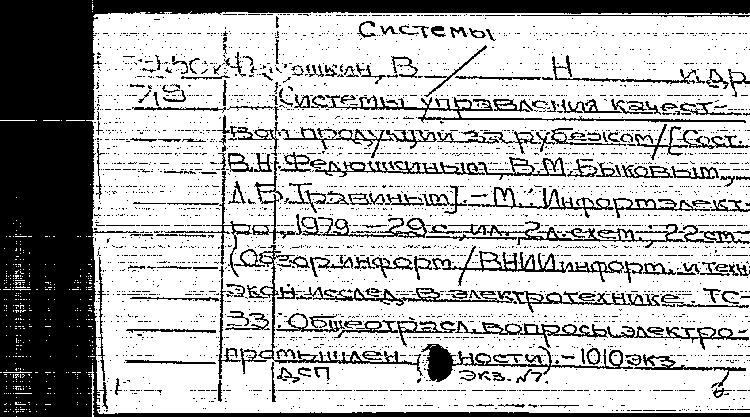 Системы
В Н и др
Системы управления качест-
вом продукции за рубежом / [Сост.
В.Н. Федюшкиным, В.М. Быковым,
Л.Б. Травиным]. - М.: Информэлект-
ро, 1979. - 29 с., ил., 2 л. схем.; 22 см. -
(Обзор. информ. / ВНИИ информ. и техн.
экон. исслед. в электротехнике. ТС-
33. Общеотрасл. вопросы электро-
промышлен ности). - 1010 экз.
ДСП экз. №7.